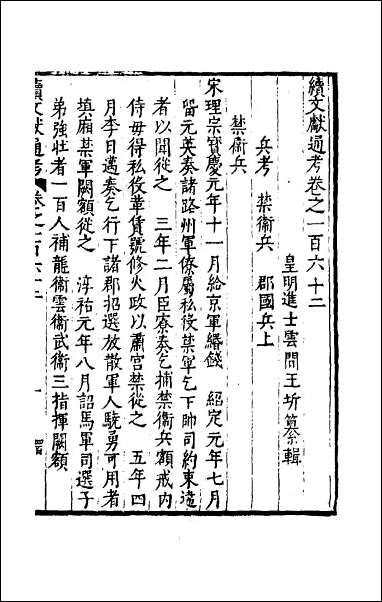 續文獻通考卷之一百六十二
皇明進士雲間王圻纂輯
兵考 禁衞兵 郡國兵上
禁衞兵
宋理宗寶慶元年十一月給京軍緡錢 紹定元年七月
留元英奏諸路州軍僚屬私役禁軍乞下帥司約束違
者以聞從之 三年二月臣寮奏乞補禁衞兵額戒内
侍毋得私役軍賃號修火政以肅宮禁從之 五年四
月李日邁奏乞行下諸郡招選放散軍人驍勇可用者
填廂禁軍闕額從之 淳祐元年八月詔馬軍司選子
弟強壯者一百人補龍衞雲衞武衞三指揮闕額
續文獻通考 卷之一百六十二 一